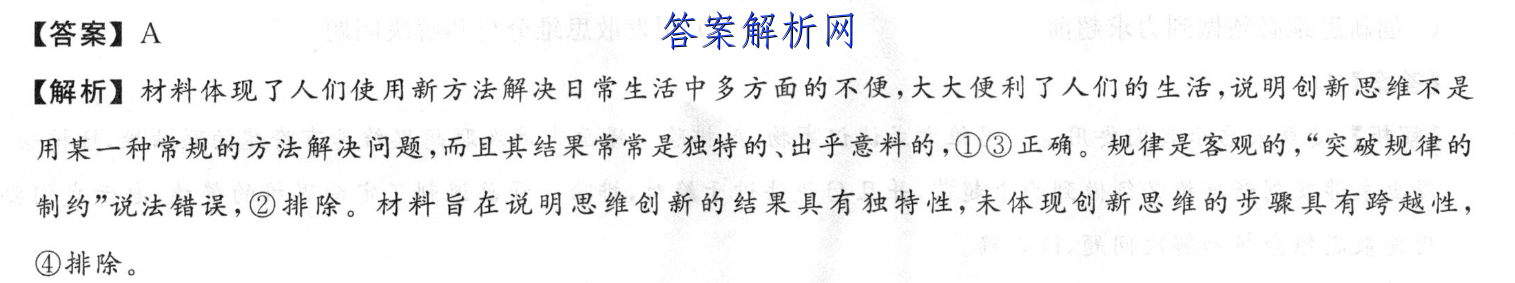 【答案】A
答案解析网
【解析】材料体现了人们使用新方法解决日常生活中多方面的不便,大大便利了人们的生活,说明创新思维不是
用某一种常规的方法解决问题,而且其结果常常是独特的、出乎意料的,①③正确。规律是客观的,“突破规律的
制约”说法错误,②排除。材料旨在说明思维创新的结果具有独特性,未体现创新思维的步骤具有跨越性,
④排除。